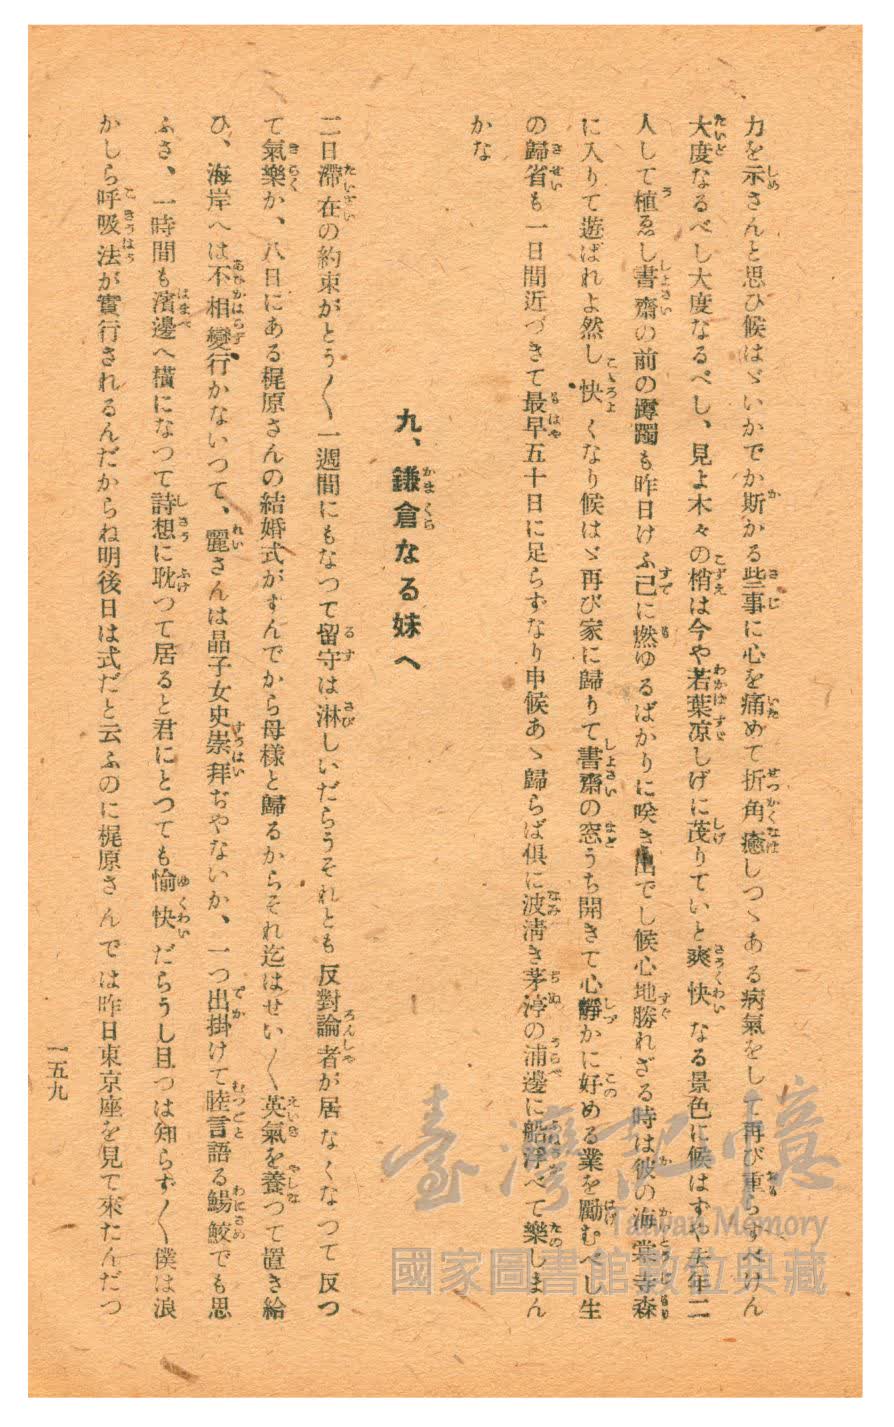 力を示さんと思ひ候はゞいかでか斯かる些事に心を痛めて折角癒しつゝある病氣をして再び重らすべけん
大度なるべし大度なるべし、見よ木々の梢は今や若葉凉しげに茂りていと爽快なる景色に候はずや去年二
人して植ゑし書齋の前の躑躅も昨日けふ已に燃ゆるばかりに咲き出でし候心地勝れざる時は彼の海棠寺森
に入りて遊ばれよ然し快くなり候はゞ再び家に歸りて書齋の窓うち開きて心靜かに好める業を勵むべし生
の歸省も一日間近づきて最早五十日に足らずなり申候あゝ歸らば俱に波淸き茅渟の浦邊に船浮べて樂しまん
かな
九、鎌倉なる妹へ
二日滯在の約束がとう〳〵一週間にもなつて留守は淋しいだらうそれとも反對論者が居なくなつて反つ
て氣樂か、八日にある梶原さんの結婚式がすんでから母樣と歸るからそれ迄はせい〳〵英氣を養つて置き給
ひ、海岸へは不相變行かないつて、麗さんは晶子女史崇拜ぢやないか、一つ出掛けて睦言語る鰐鮫でも思
ふさ、一時間も濱邊へ横になつて詩想に耽つて居ると君にとつても愉快だらうし且つは知らず〳〵僕は浪
かしら呼吸法が實行されるんだからね明後日は式だと云ふのに梶原さんでは昨日東京座を見て來たんだつ
一五九
臺灣記憶
Taiwan Memory
國家圖書館數位典藏